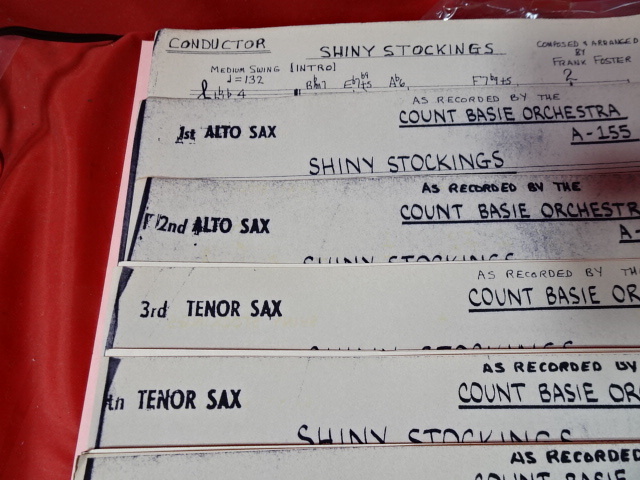 CONDUCTOR SHINY STOCKINGS COMPOSED & ARRANGED
BY
FRANK FOSTER
MEDIUM SWING [INTRO]
♩=132
AS RECORDED BY THE
1st ALTO SAX COUNT BASIE ORCHESTRA
A-155
SHINY STOCKINGS
AS RECORDED BY THE
2nd ALTO SAX COUNT BASIE ORCHESTR
A-
SHINY STOCKINGS
AS RECORDED BY TH
3rd TENOR SAX COUNT BASIE OR
AS RECORDED BY
th TENOR SAX COUNT BASIE OR
SHINY STOCKINGS
AS RECORDED
COUNT BASIE